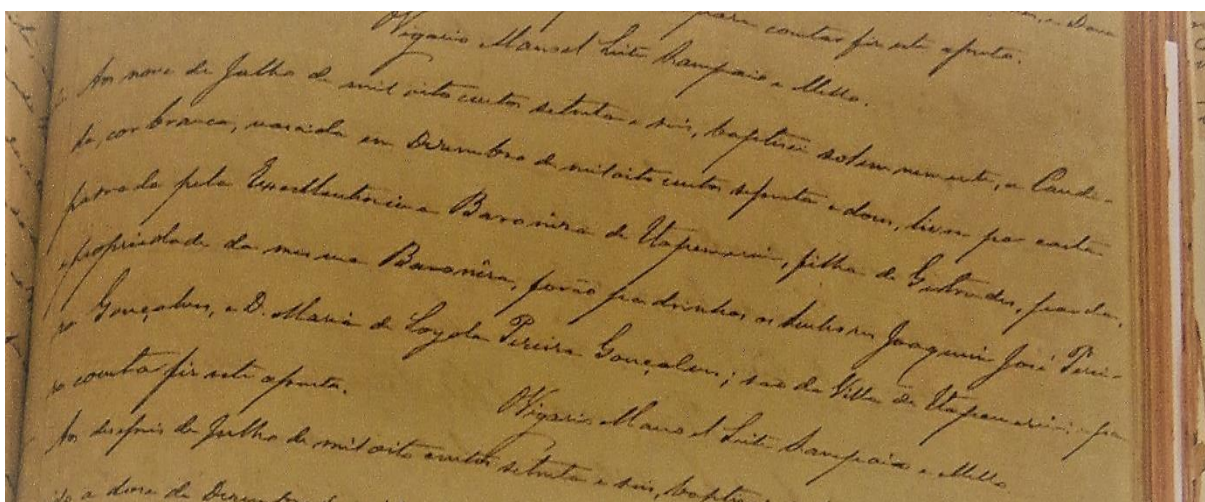 para constar fiz este assento.
O Vigario Manoel Leite Sampaio e Mello.
Aos nove de Julho de mil oito centos setenta e seis, baptisei solemnemente, a Candi-
da, cor branca, nascida em Dezembro de mil oito centos setenta e dous, livre por carta
passada pela Excellentissima Baroneza de Itapemirim, filha de Gertrudes, parda,
e propriedade da mesma Baroneza, forão padrinhos os Senhores Joaquim José Perei-
ra Gonçalves, e D. Maria de Loyola Pereira Gonçalves; são da Villa de Itapemirim, e pa-
ra constar fiz este assento.
O Vigario Manoel Leite Sampaio e Mello
Aos deseseis de Julho de mil oito centos setenta e seis, baptisei
a doze de Dezembro